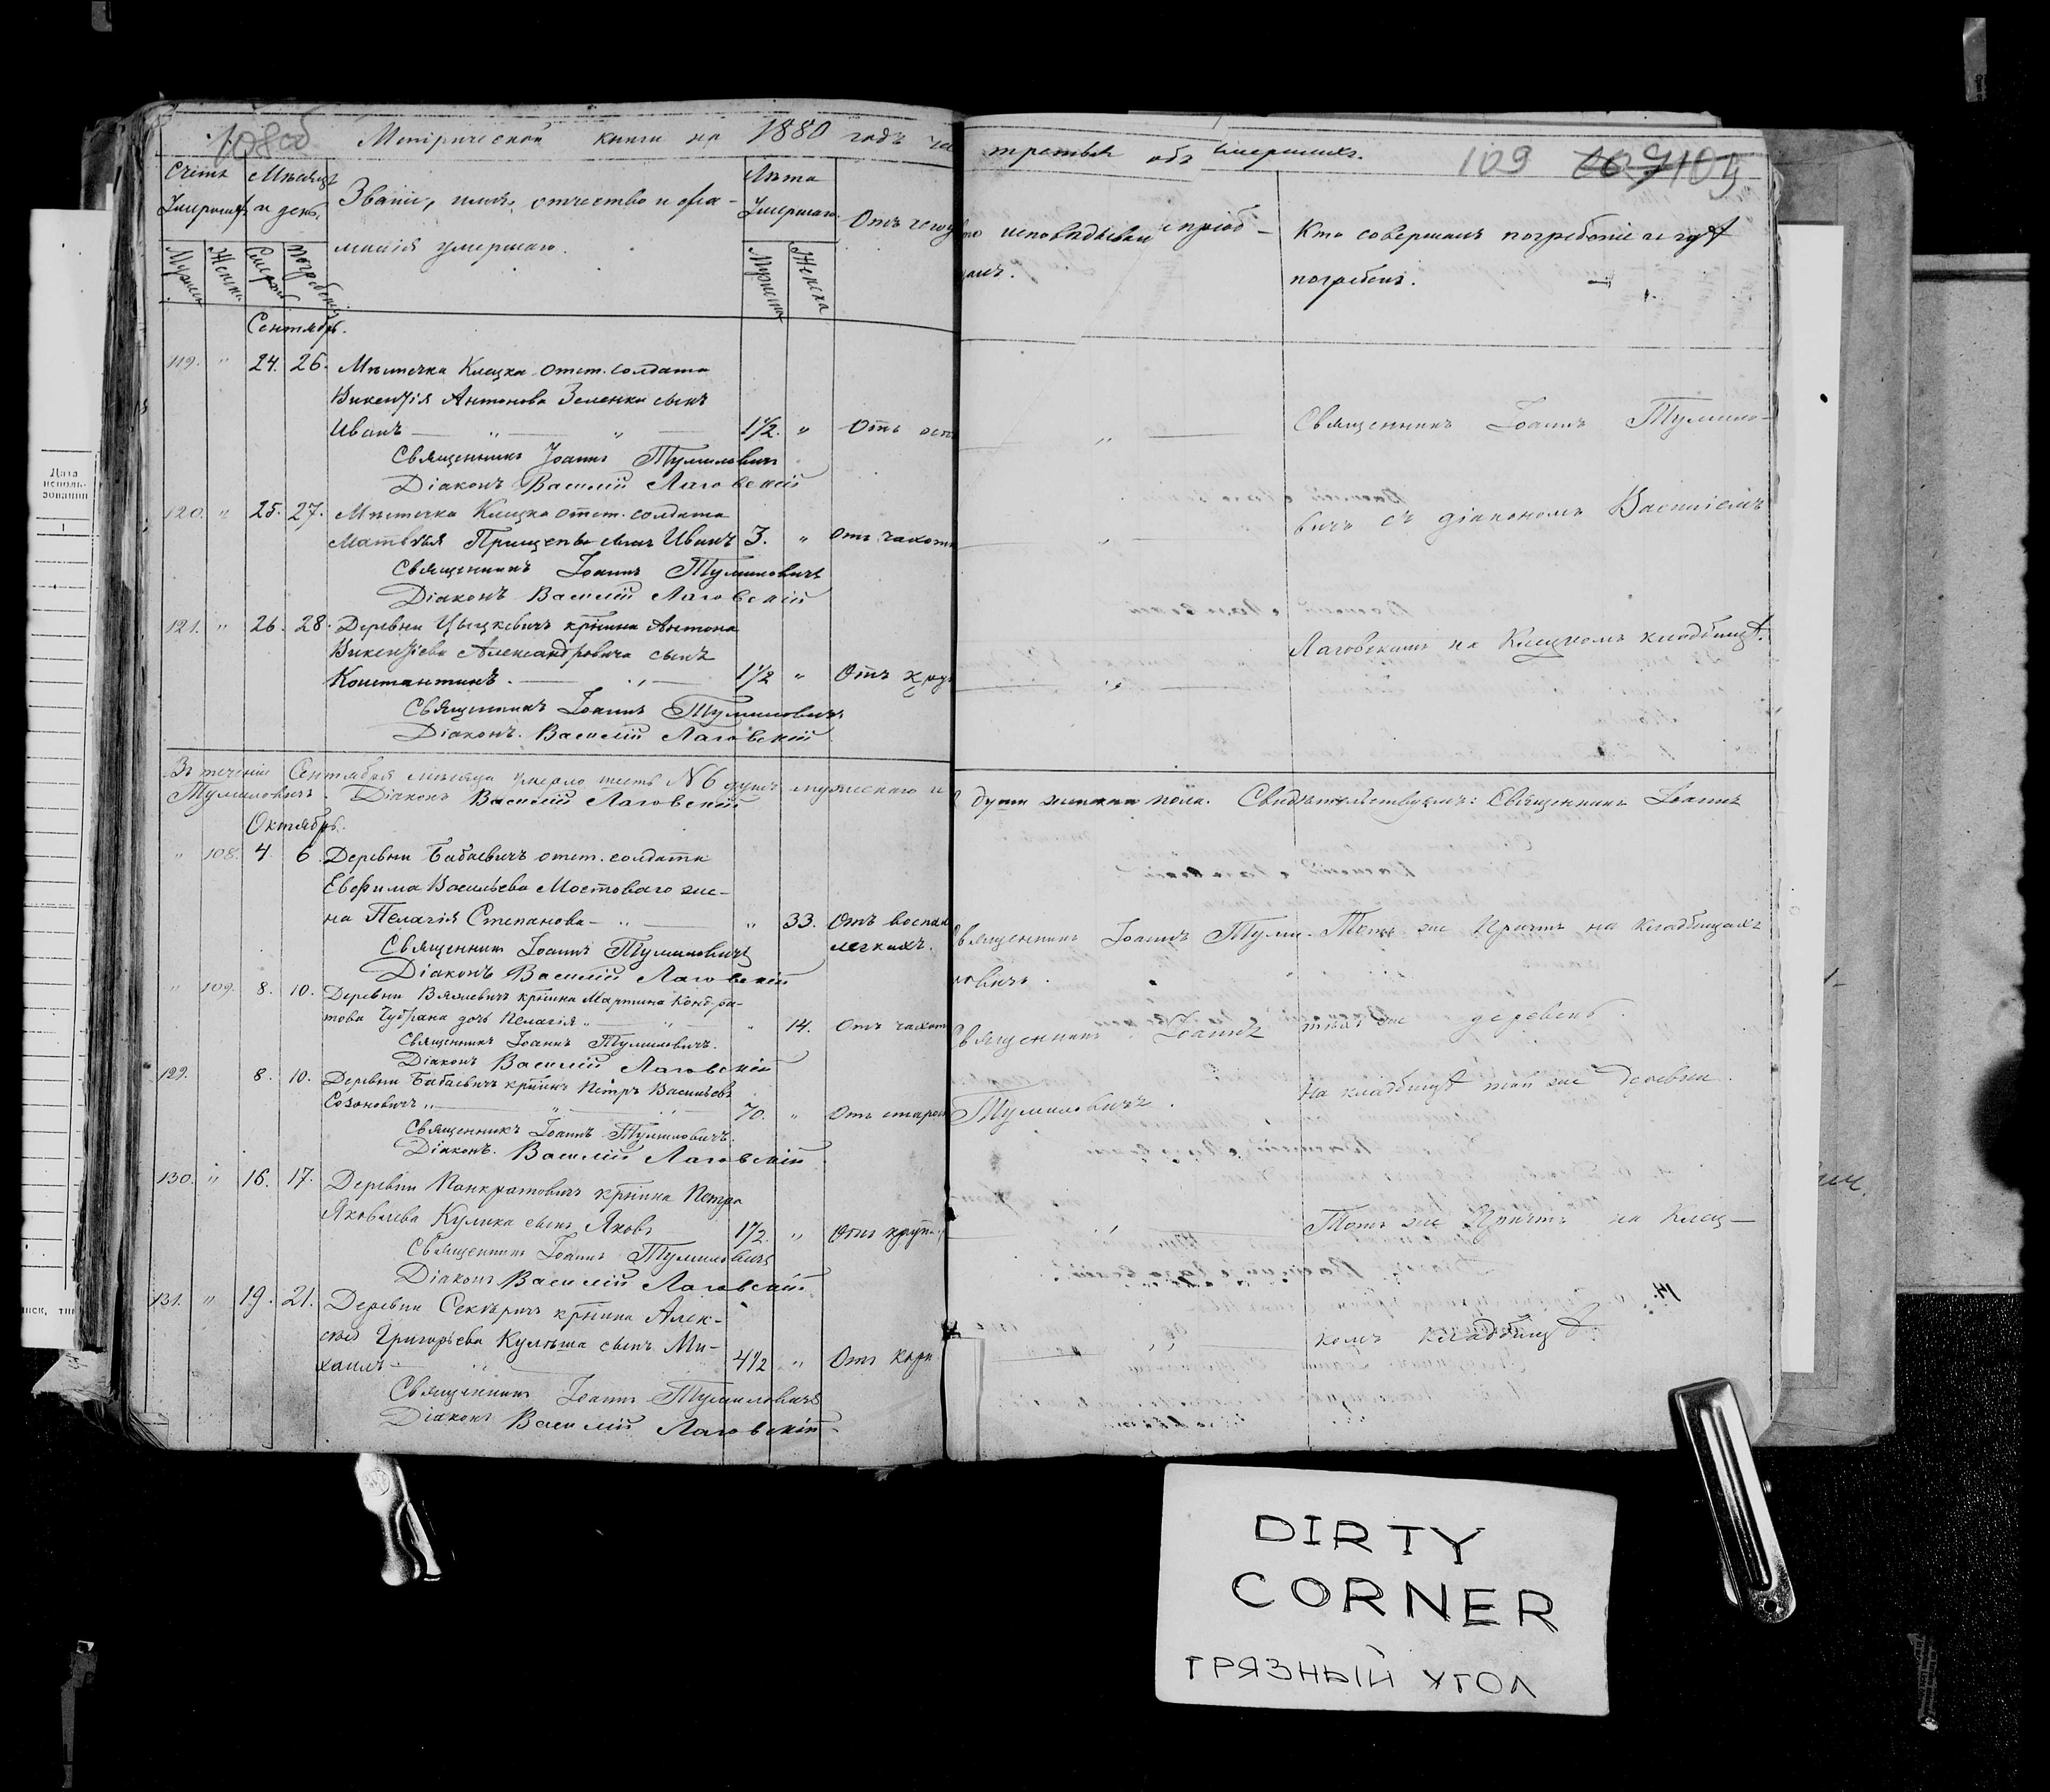 108об
Метрической книги на 1880 годъ ча
Счетъ Умершихъ
Мѣсяцъ и день
Званіе, имя, отчество и фа-
милія умершаго.
Лѣта Умершаго
Отъ чего у
Мужеск
Женск
Смерти
Погребенія
Мужеска
Женска
Сентябрь.
119. " 24. 26. Мѣстечка Клецка отст. солдата
Викентія Антонова Зеленки сынъ
Иванъ — " — " — 1½. " Отъ осп
Священникъ Іоаннъ Тумиловичъ
Діаконъ Василій Лаговскій
120. " 25. 27. Мѣстечка Клецка отст. солдата
Матвѣя Прищепы сынъ Иванъ 3. " Отъ чахотк
Священникъ Іоаннъ Тумиловичъ
Діаконъ Василій Лаговскій
121. " 26. 28. Деревни Цыцкевичъ крѣнина Антона
Викентіева Александровича сынъ
Константинъ. — " — 1½ " Отъ
Священникъ Іоаннъ Тумиловичъ
Діаконъ. Василій Лаговскій
Въ теченіе Сентября мѣсяца умерло шесть №6 душъ мужскаго и
Тумиловичъ. Діаконъ Василій Лаговскій
Октябрь.
" 108. 4. 6. Деревни Бабаевичъ отст. солдата
Евфима Васильева Мостоваго же-
на Пелагія Степанова — " — " 33. Отъ воспал
легкихъ.
Священникъ Іоаннъ Тумиловичъ
Діаконъ Василій Лаговскій
" 109. 8. 10. Деревни крѣнина Мартина Кондра-
това дочь Пелагія " " 14. Отъ чахот
Священникъ Іоаннъ Тумиловичъ.
Діаконъ Василій Лаговскій
129. 8. 10. Деревни Бабаевичъ крѣнинъ Петръ Васильевъ
Созоновичъ " — " — 70. " Отъ старос
Священникъ Іоаннъ Тумиловичъ.
Діаконъ. Василій Лаговскій
130. " 16. 17. Деревни Панкратовичъ крѣнина Петра
Яковлева Кулика сынъ Яковъ 1½. " Отъ крупа
Священникъ Іоаннъ Тумиловичъ
Діаконъ Василій Лаговскій
131. " 19. 21. Деревни Секеричъ крѣнина Алек-
сѣя Григорьева Кулѣша сынъ Ми-
хаилъ — " 4½ " Отъ кори
Священникъ Іоаннъ Тумиловичъ
Діаконъ Василій Лаговскій
третья объ умершихъ.
109 109 109
то исповѣдывалъ и пріоб-
щалъ.
Кто совершалъ погребеніе и гдѣ
погребены.
Священникъ Іоаннъ Тумило-
вичъ съ діакономъ Василіемъ
Лаговскимъ на Клецкомъ кладбищѣ.
душъ женска пола. Свидѣтельствуемъ: Священникъ Іоаннъ
Священникъ Іоаннъ Туми-
ловичъ.
Тотъ же Причтъ на кладбищахъ
Священникъ Іоаннъ
тѣхъ же деревень.
Тумиловичъ.
На кладбищѣ той же деревни.
Тотъ же Причтъ на Клец-
комъ кладбищѣ.
14.
Дата
исполь-
зования
DIRTY
CORNER
ГРЯЗНЫЙ УГОЛ